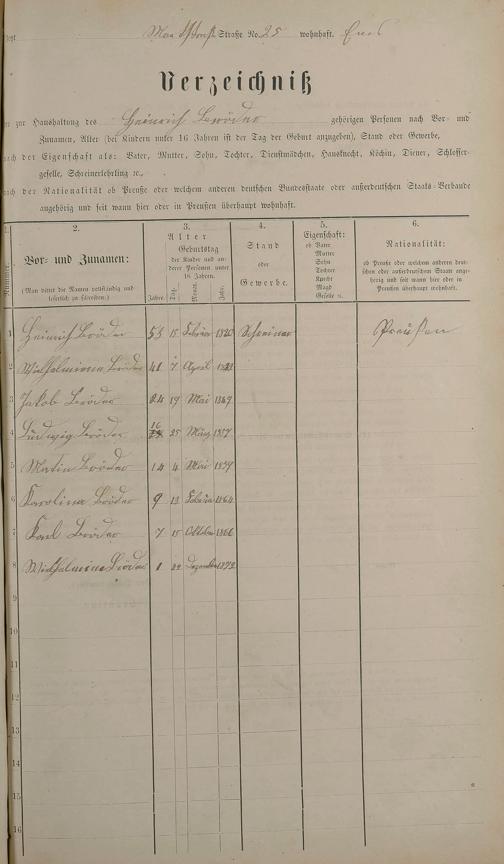 Straße No. 25 wohnhaft. Ems
Verzeichniß
zur Haushaltung des Heinrich Bröder gehörigen Personen nach Vor- und
Zunamen, Alter (bei Kindern unter 16 Jahren ist der Tag der Geburt anzugeben), Stand oder Gewerbe,
nach der Eigenschaft als: Vater, Mutter, Sohn, Tochter, Dienstmädchen, Hausknecht, Köchin, Diener, Schlosser-
geselle, Schreinerlehrling ꝛc.,
nach der Nationalität ob Preuße oder welchem anderen deutschen Bundesstaate oder außerdeutschen Staats-Verbande
angehörig und seit wann hier oder in Preußen überhaupt wohnhaft.
1. 2. 3. 4. 5. 6.
Nummer.
Vor- und Zunamen:
(Man bittet die Namen vollständig und
leserlich zu schreiben.)
Alter
Geburtstag
der Kinder und an-
derer Personen unter
16 Jahren.
Jahre. Tag. Monat. Jahr.
Stand
oder
Gewerbe.
Eigenschaft:
ob Vater
Mutter
Sohn
Tochter
Knecht
Magd
Geselle ꝛc.
Nationalität:
ob Preuße oder welchem anderen deut-
schen oder außerdeutschen Staate ange-
hörig und seit wann hier oder in
Preußen überhaupt wohnhaft.
1 Heinrich Bröder 53 15 Februar 1820 Schreiner Preußen
2 Wilhelmina Bröder 41 7 April
3 Jakob Bröder 24 19 Mai 1849
4 Ludwig Bröder 16 25 März 1857
5 Bröder 14 4 Mai 1859
6 Karolina Bröder 9 13 Februar 1864
7 Karl Bröder 7 15 Oktober 1866
8 Wilhelmine Bröder 1 22 Dezember 1872
9
10
11
12
13
14
15
16